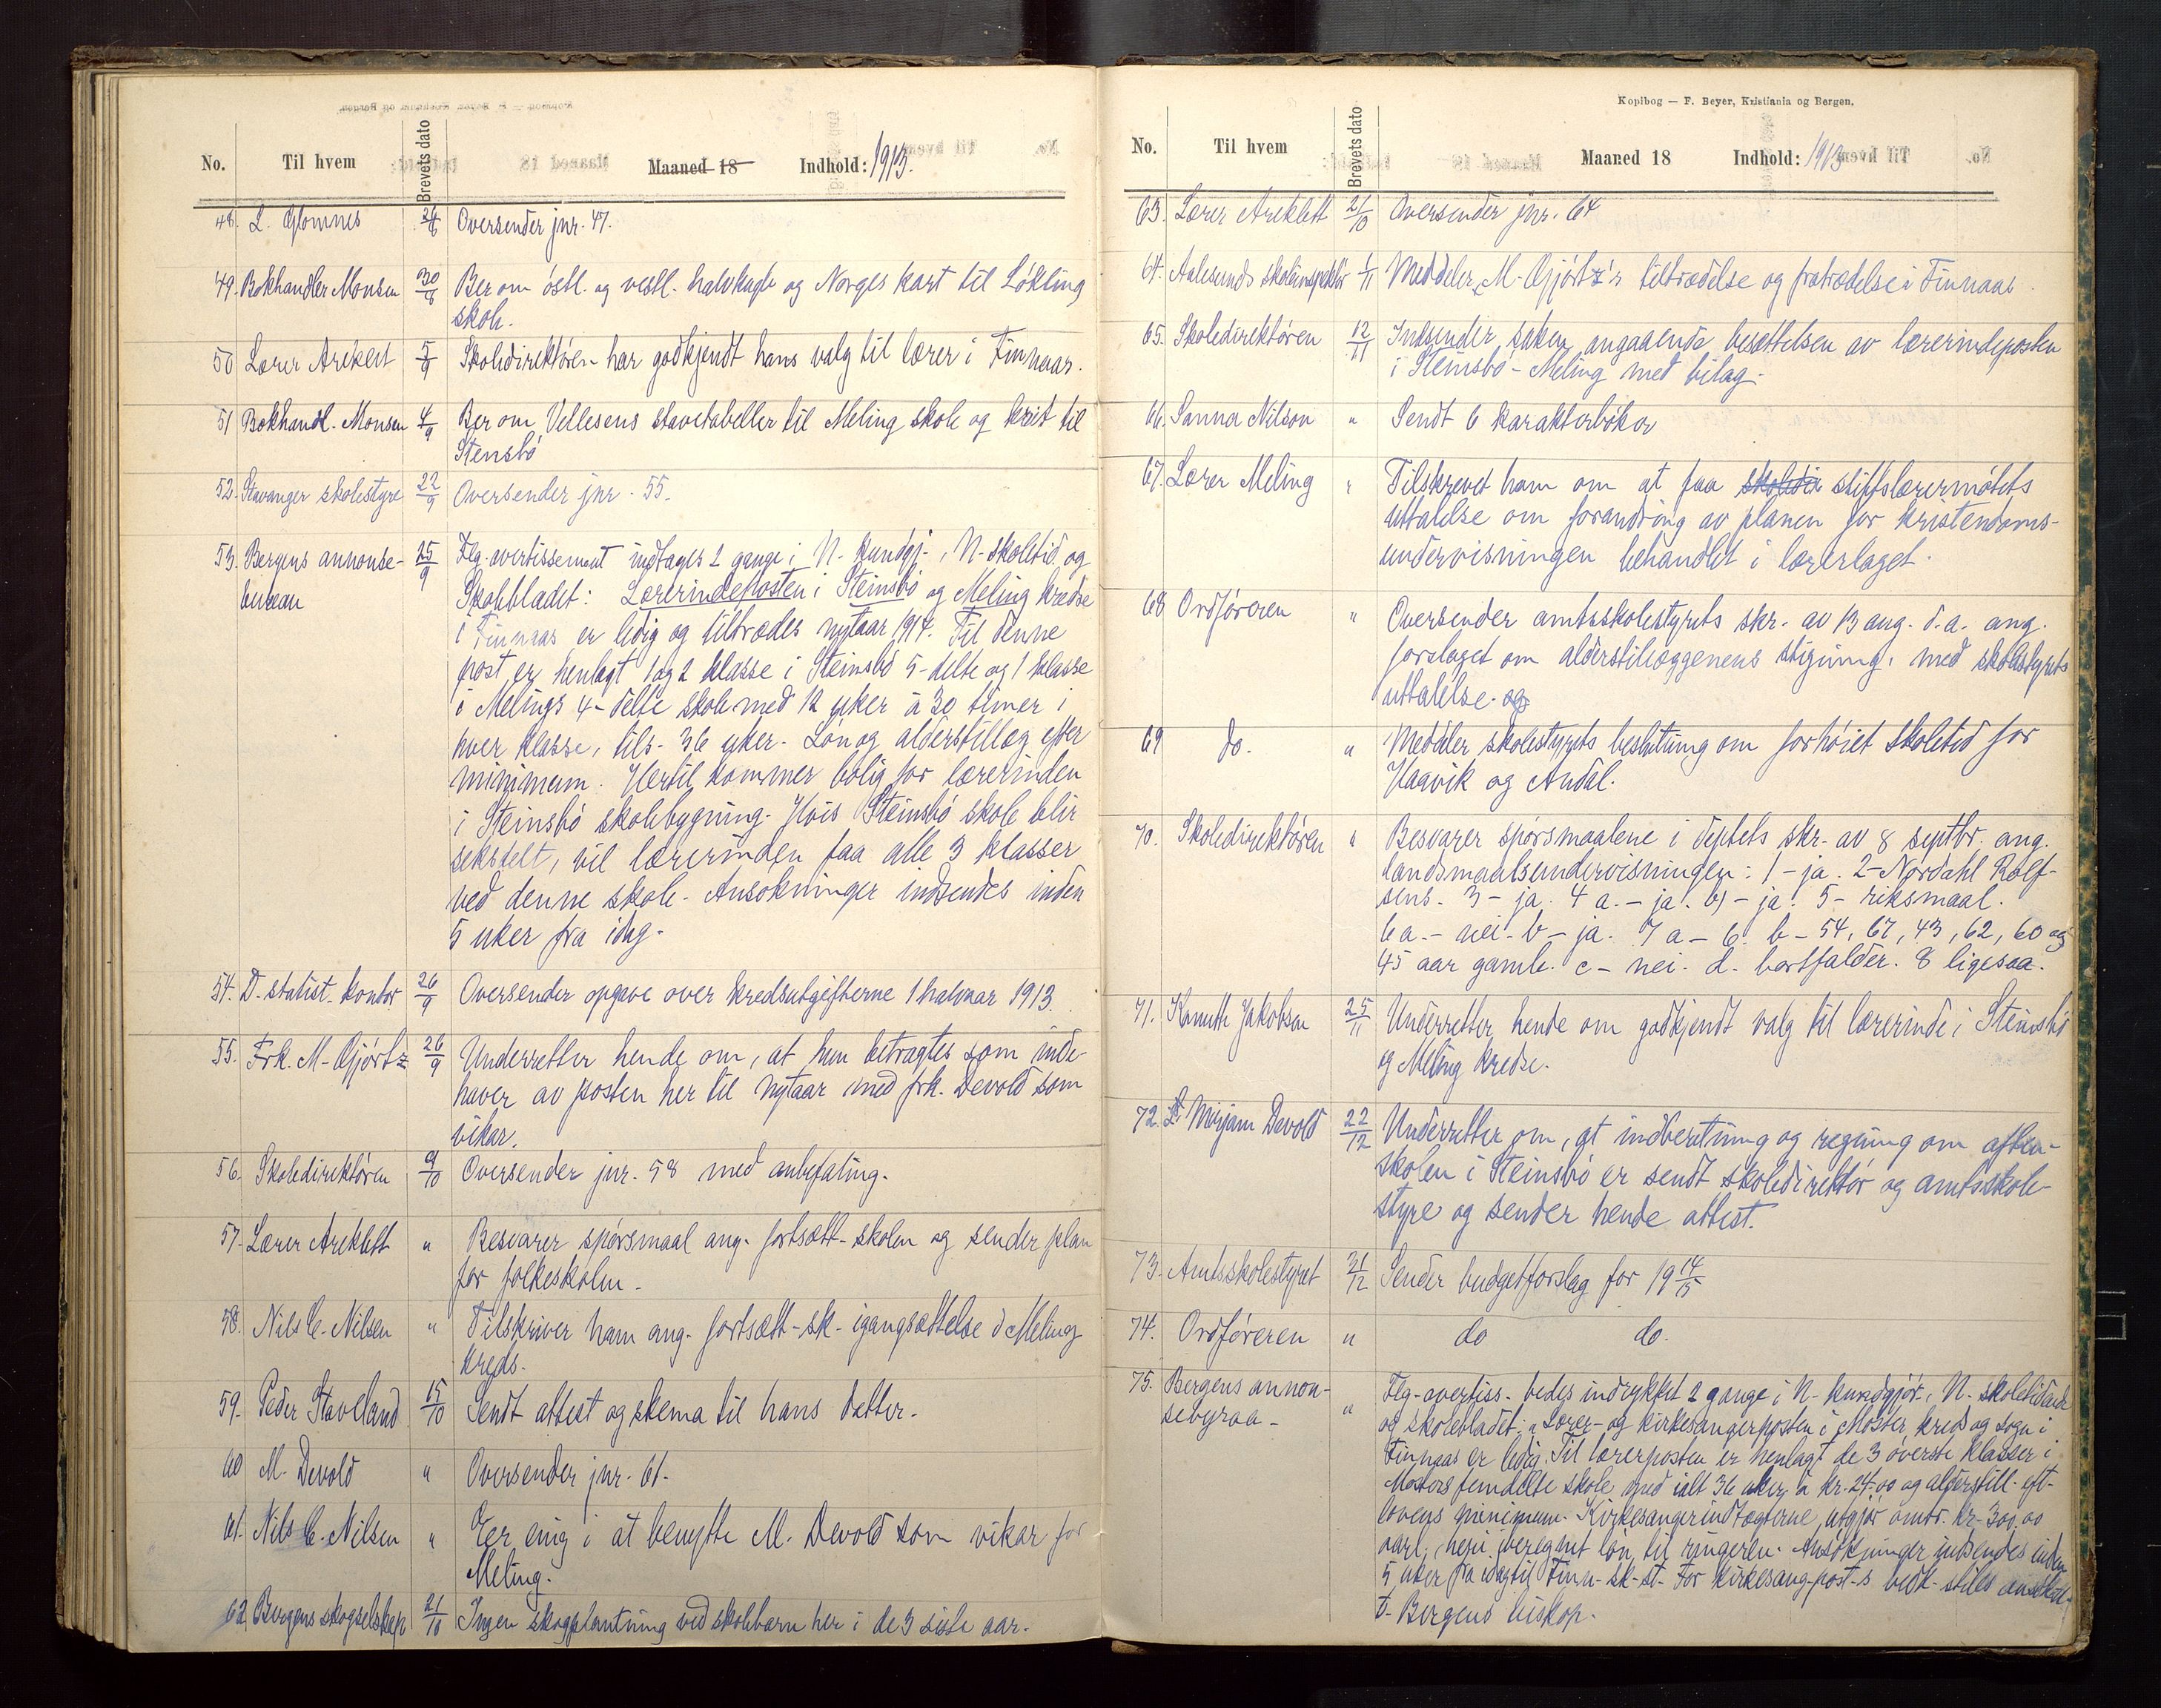 No. Til hvem Brevets dato Maaned 18 Indhold: 1913.
48. L. Glomnes 26/8 Oversender jnr. 47.
49. Bokhandler Monsen 30/8 Ber om östl. og vestl. halvkugle og Norges kart til Lökling
skole.
50 Lærer Areklett 5/9 Skoledirektören har godkjendt hans valg til lærer i Finnaas.
51 Bokhandl. Monsen 4/9 Ber om Vellesens stavetabeller til Meling skole og krit til
Stensbö
52. Stavanger skolestyre 22/9 Oversender jnr. 55.
53. Bergens annonse- 25/9 Flg. avertissement indtages 2 gange i N. kundgj., N. skoletid. og
bureau Skolebladet: Lærerindeposten i Steinsbö og Meling kredse
i Finnaas er ledig og tiltrædes nytaar 1914. Til denne
post er henlagt 1 og 2 klasse i Steinsbö 5-delte og 1 klasse
i Melings 4-delte skole med 12 uker à 30 timer i
hver klasse, tils. 36 uker. Lön og alderstillæg efter
minimum. Hertil kommer bolig for lærerinden
i Steinsbö skolebygning. Hvis Steinsbö skole blir
seksdelt, vil lærerinden faa alle 3 klasser
ved denne skole. Ansökninger indsendes inden
5 uker fra idag.
54. D. statist. kontor 26/9 Oversender opgave over kredsutgifterne 1 halvaar 1913.
55. Frk. M. Gjörtz 26/9 Underretter hende om, at hun betragtes som inde-
haver av posten her til nytaar med frk. Devold som
vikar.
56. Skoledirektören 9/10 Oversender jnr. 58 med anbefaling.
57. Lærer Areklett " Besvarer spörsmaal ang. fortsætt-skolen og sender plan
for folkeskolen.
58. Nils C. Nilsen " Tilskriver ham ang. fortsætt-sk. igangsættelse i Meling
kreds.
59. Peder Staveland 15/10 Sendt attest og skema til hans datter.
60 M. Devold " Oversender jnr. 61.
61. Nils C. Nilsen " Er enig i at benytte M. Devold som vikar for
Meling.
62 Bergens skogselskap 21/10 Ingen skogplantning ved skolebarn her i de 3 siste aar.
Kopibog — F. Beyer, Kristiania og Bergen.
No. Til hvem Brevets dato Maaned 18 Indhold: 1913
63. Lærer Areklett 21/10 Oversender jnr. 64
64. Aalesunds skoleinspektör 1/11 Meddeler M. Gjörtz's tiltrædelse og fratrædelse i Finnaas.
65. Skoledirektören 12/11 Indsender saken angaaende besættelsen av lærerindeposten
i Steinsbö - Meling med bilag.
66. Sanna Nilson " Sendt 6 karakterböker
67. Lærer Meling " Tilskrevet ham om at faa skoledir stiftslærermötets
uttalelse om forandring av planen for kristendoms-
undervisningen behandlet i lærerlaget.
68 Ordföreren " Oversender amtsskolestyrets skr. av 13 aug. d.a. ang.
forslaget om alderstillæggenens stigning, med skolestyrets
uttalelse. og
69 do. " Meddeler skolestyrets beslutning om forhöiet skoletid for
Vaavik og Andal.
70. Skoledirektören " Besvarer spörsmaalene i deptets skr. av 8 septbr. ang.
landsmaalsundervisningen: 1 - ja. 2 - Nordahl Rolf-
sens. 3 - ja. 4 a. - ja. b) - ja. 5 - riksmaal.
6 a. - nei. b - ja. 7 a - 6. b - 54, 67, 43, 62, 60 og
45 aar gamle. c - nei. d. bortfalder. 8 ligesaa.
71. Kamitte Jakobsen 25/11 Underretter hende om godkjendt valg til lærerinde i Steinsbö
og Meling kredse.
72. Mirjam Devold 22/12 Underretter om, at indberetning og regning om aften-
skolen i Steinsbö er sendt skoledirektör og amtsskole-
styre og sender hende attest.
73. Amtsskolestyret 31/12 Sender budgetforslag for 1914/15
74. Ordföreren " do do.
75. Bergens annon- " Flg. avertiss. bedes indrykket 2 gange i N. kundgjör., N. skoletidende
sebyraa - og skolebladet: „Lærer- og kirkesangerposten i Moster kreds og sogn i
Finnaas er ledig. Til lærerposten er henlagt de 3 överste klasser i
Mosters femdelte skole med ialt 36 uker à kr. 24.00 og alderstill. eft.
lovens minimum. Kirkesangerindtægterne utgjör omtr. kr. 300.00
aarl., heri beregnet lön til ringeren. Ansökninger indsendes inden
5 uker fra idag til Finn. sk. st. For kirkesang.post.s vedk. stiles
t. Bergens biskop.